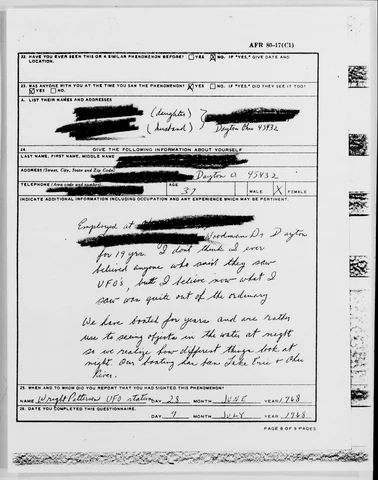 AFR 80-17(C1)
22. HAVE YOU EVER SEEN THIS OR A SIMILAR PHENOMENON BEFORE? YES X NO. IF "YES," GIVE DATE AND
LOCATION.
23. WAS ANYONE WITH YOU AT THE TIME YOU SAW THE PHENOMENON? X YES NO. IF "YES," DID THEY SEE IT TOO?
X YES NO.
A. LIST THEIR NAMES AND ADDRESSES
(daughter)
(husband) Dayton Ohio 45432
24. GIVE THE FOLLOWING INFORMATION ABOUT YOURSELF
LAST NAME, FIRST NAME, MIDDLE NAME
ADDRESS (Street, City, State and Zip Code) Dayton O. 45432
TELEPHONE (Area code and number) AGE 37 MALE X FEMALE
INDICATE ADDITIONAL INFORMATION INCLUDING OCCUPATION AND ANY EXPERIENCE WHICH MAY BE PERTINENT.
Employed at
Woodman Dr. Dayton
for 19 yrs. I dont think I ever
believed anyone who said they saw
UFO's, but I believe now what I
saw was quite out of the ordinary.
We have boated for years and are rather
use to seeing objects in the water at night
so we realize how different things look at
night. Our boating has been Lake Erie & Ohio
River.
25. WHEN AND TO WHOM DID YOU REPORT THAT YOU HAD SIGHTED THIS PHENOMENON?
NAME Wright Patterson UFO station DAY 28 MONTH JUNE YEAR 1968
26. DATE YOU COMPLETED THIS QUESTIONNAIRE.
DAY 7 MONTH JULY YEAR 1968
PAGE 8 OF 9 PAGES